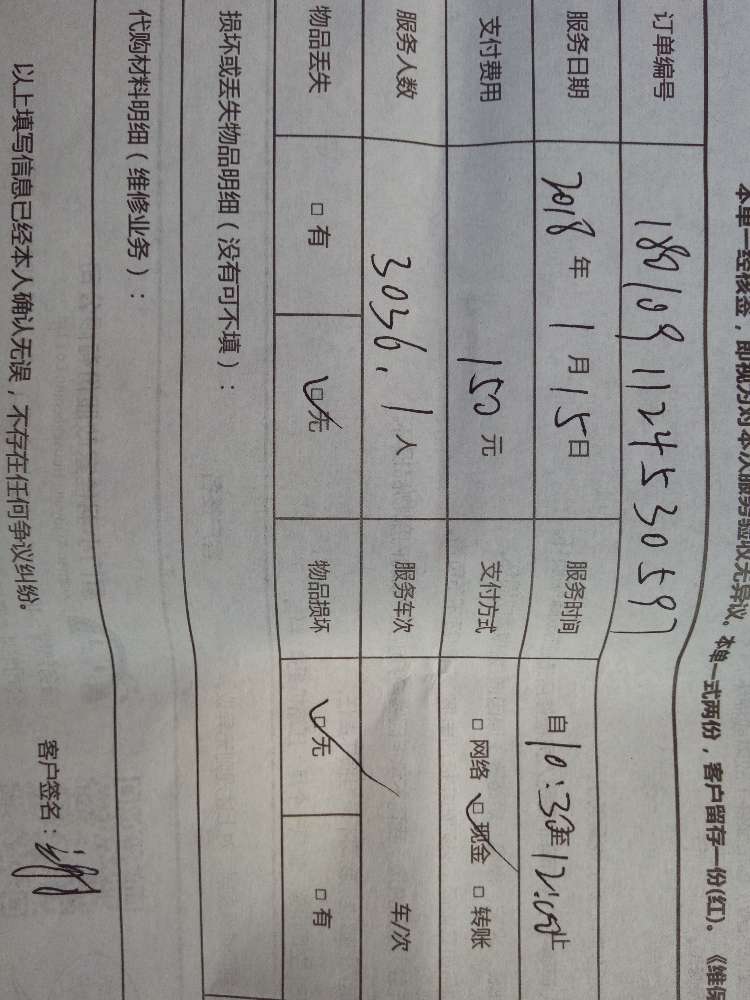 本单一经核签，即视为对本次服务验收无异议。本单一式两份，客户留存一份(红)。《维保
订单编号 180109112453059
服务日期 2018年1月15日 服务时间 自10:30至12:00止
支付费用 150元 支付方式 □网络 ☑现金 □转账
服务人数 3036.1人 服务车次 车/次
物品丢失 □有 ☑无 物品损坏 ☑无 □有
损坏或丢失物品明细（没有可不填）：
代购材料明细（维修业务）：
以上填写信息已经本人确认无误，不存在任何争议纠纷。 客户签名：